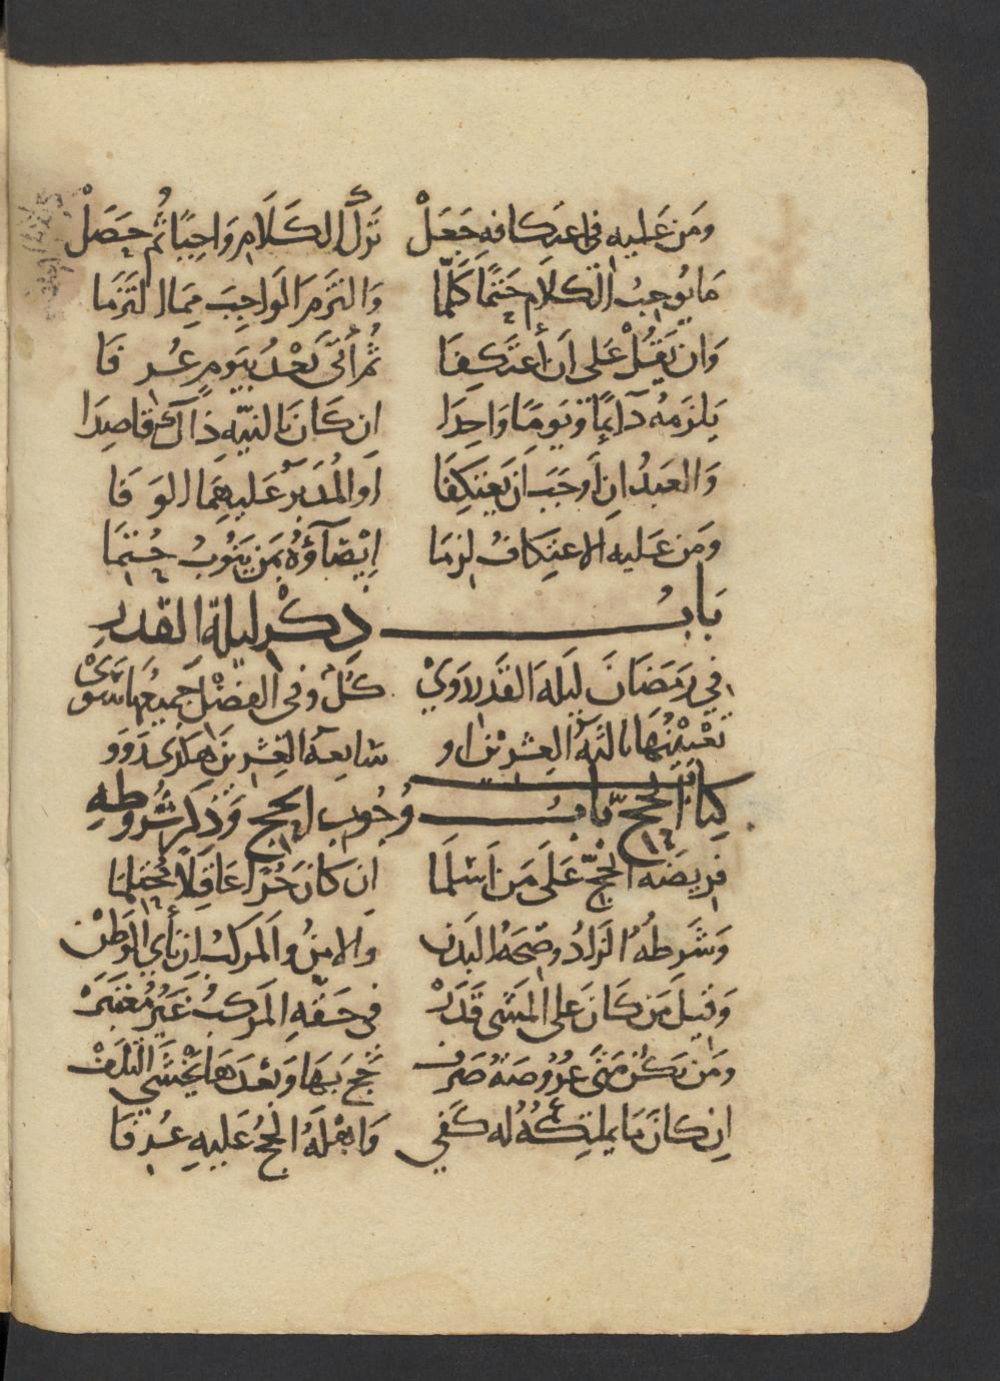 وَمَن عَليهِ في اعتكافهِ جَعَلْ تَركَ الكَلَامِ وَاجِبًا ثُمَّ حَصَلْ
مَا يُوجِبُ الكلَامَ حَتْمًا كَلَّمَا وَالتَزَمَ الوَاجِبَ مِمَا التَزَمَا
وَان يَقُلْ عَلى اَن أعتَكِفَا ثُمَّ أتَى بَعْدُ بيَومٍ عُرِفَا
يَلزَمهُ دَآئِمًا وَيَومًا وَاحِدَا ان كَانَ بالنيّه ذَاكَ قاصِدَا
وَالعَبدُ ان اَوجَبَ اَن يَعتَكِفَا اَو المُدَبَّر عَليهِمَا الوَفَا
وَمَن عَليه الاعتِكافُ لزِمَا اِيْصَآؤُهُ بمَن يَنُوبُ حُتِمَا
بَابُ ذِكْر ليلة القَدرِ
في رَمَضَانَ لَيلَه القَدر رَوَيْ كُلٌّ وفي الفضْل جَميعُهَا سَوَيْ
تَعْيْينُهَا ثالثةُ العِشْرِيْنَ او سَابِعةُ العِشْرِينَ هكذى رَوَو
كِتَابُ الحَجِّ بَابُ وُجُوبِ الحجِّ وَذِكرِ شُرُوطِهِ
فَرِيضَه الحجّ عَلَى مَن اَسْلَمَا ان كانَ حُرًّا عَاقِلًا مُحتَلِمَا
وَشَرطهُ الزادُ وصِّحَهُ البَدَن وَالامنُ وَالمَركَبُ ان نَأي الوَطَنْ
وَقيلَ مَن كَانَ عَلى المَشَى قَدَرْ فى حَقّهِ المَركَبُ غَيْرُ مُعْتَبَرْ
ومَن تكُن مَعَى عرُوضَهُ صَرَف حَجَّ بهَا وَبَعْدَهَا يَخْشَى التَلَفْ
اِن كانَ مَا يملِكُهُ له كَفي وَاهْلهُ الحَجُّ عَليهِ عُرِفَا